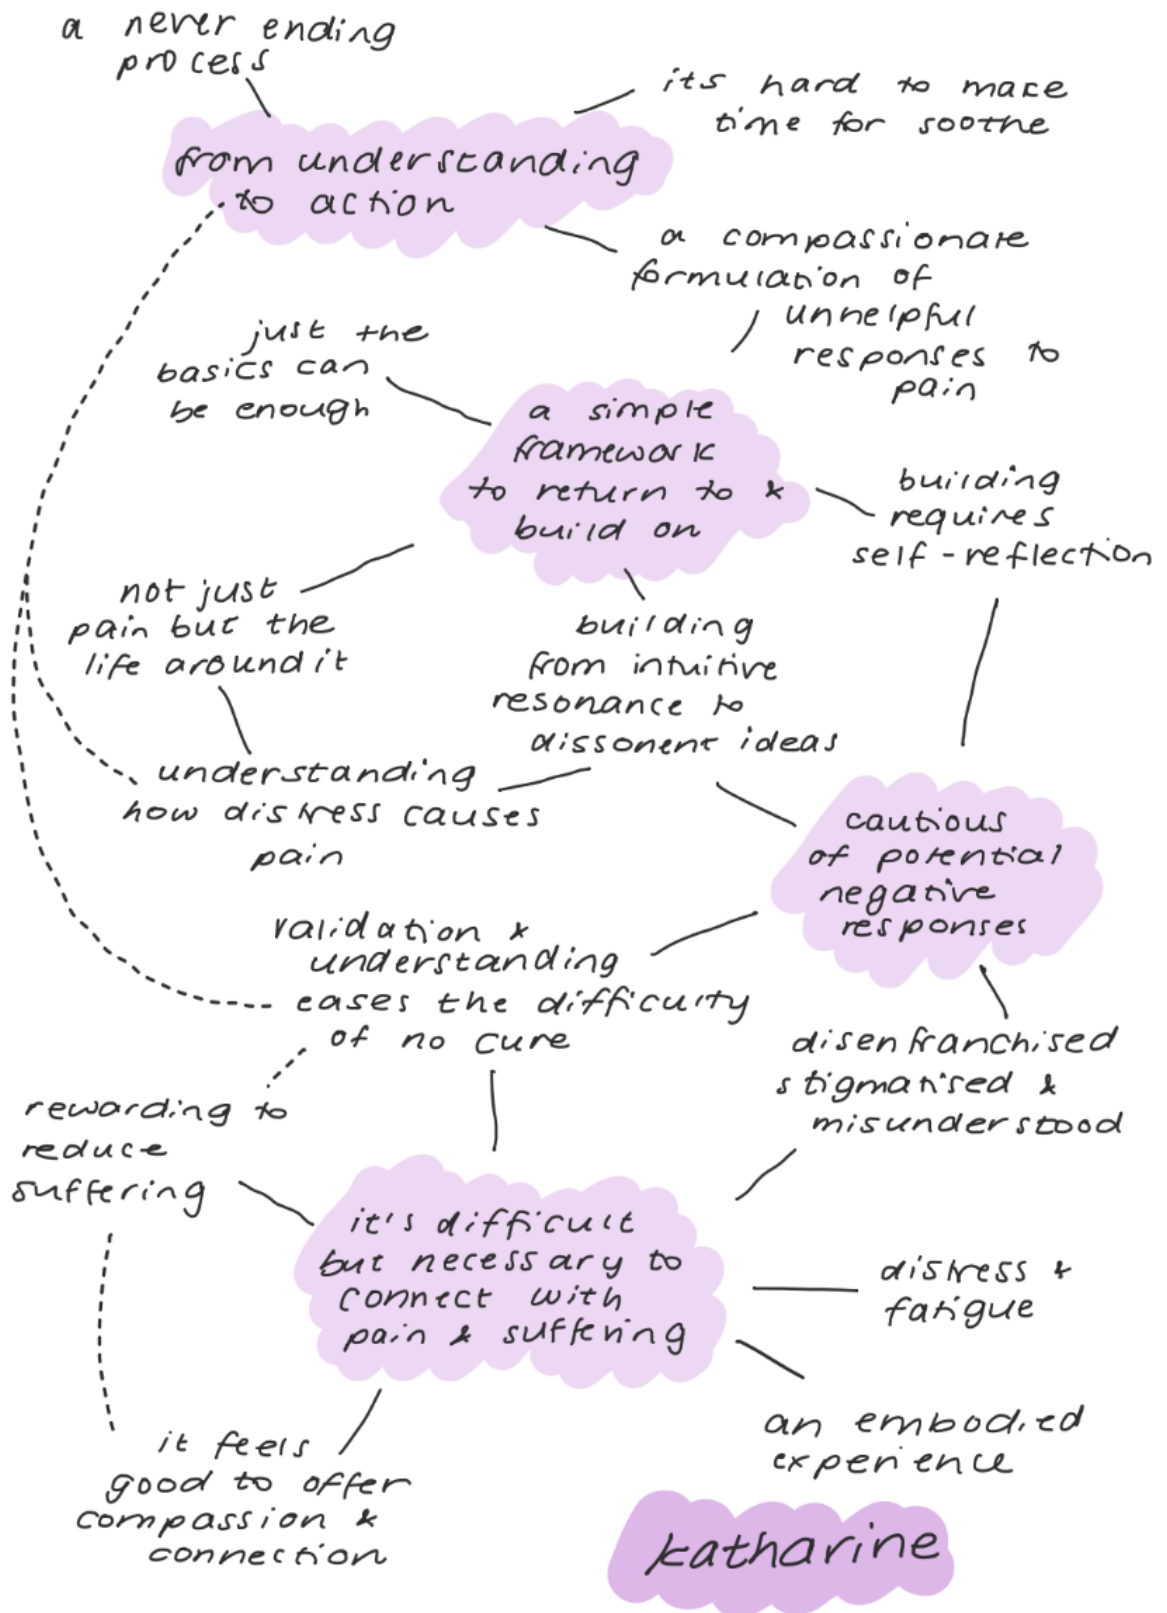 a never ending
process
its hard to make
time for soothe
from understanding
to action
a compassionate
formulation of
unhelpful
responses to
pain
just the
basics can
be enough
a simple
framework
to return to &
build on
building
requires
self-reflection
not just
pain but the
life around it
building
from intuitive
resonance to
dissonent ideas
understanding
how distress causes
pain
cautious
of potential
negative
responses
validation &
understanding
eases the difficulty
of no cure
disenfranchised
stigmatised &
misunderstood
rewarding to
reduce
suffering
it's difficult
but necessary to
connect with
pain & suffering
distress &
fatigue
an embodied
experience
it feels
good to offer
compassion &
connection
katharine